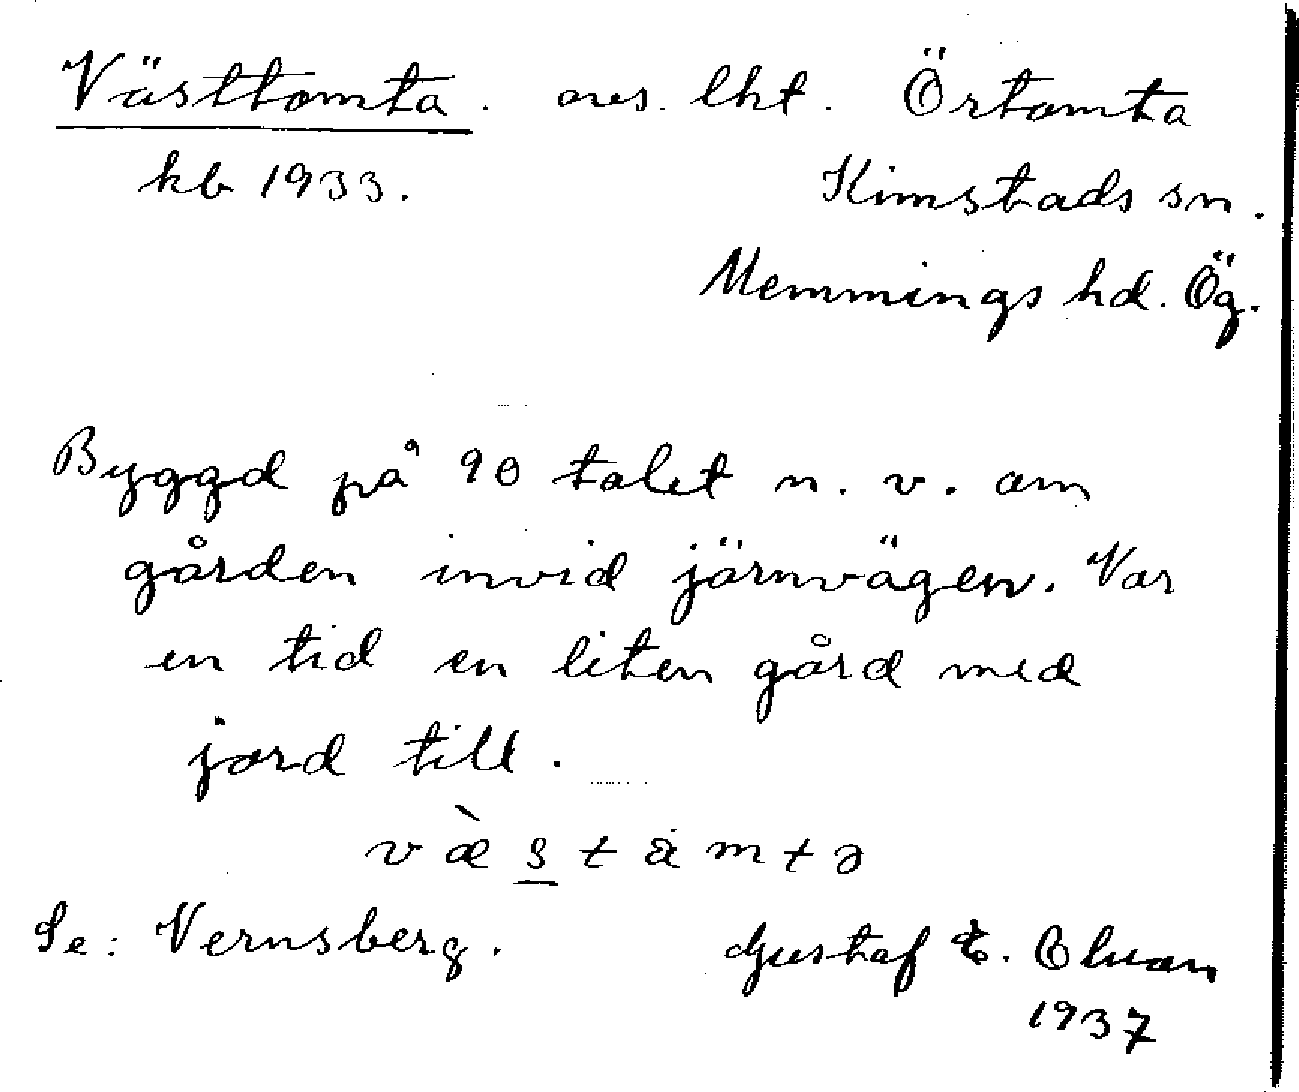 Västtomta. avs. lht. Örtomta
kb 1933. Kimstads sn.
Memmings hd. Ög.
Byggd på 90 talet n. v. om
gården invid järnvägen. Var
en tid en liten gård med
jord till.
væ̀s̲tåmtə
Se: Vernsberg. Gustaf E.
1937